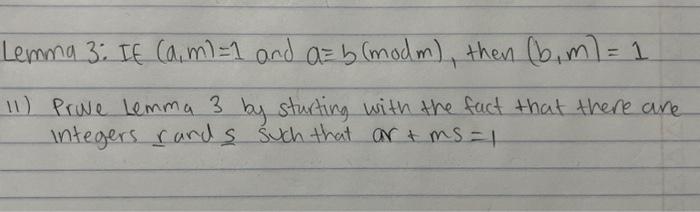 Lemma 3: If (a,m)=1 and a≡b(modm), then (b,m)=1
11) Prove Lemma 3 by sturting with the fact that there are
integers r and s such that ar + ms = 1